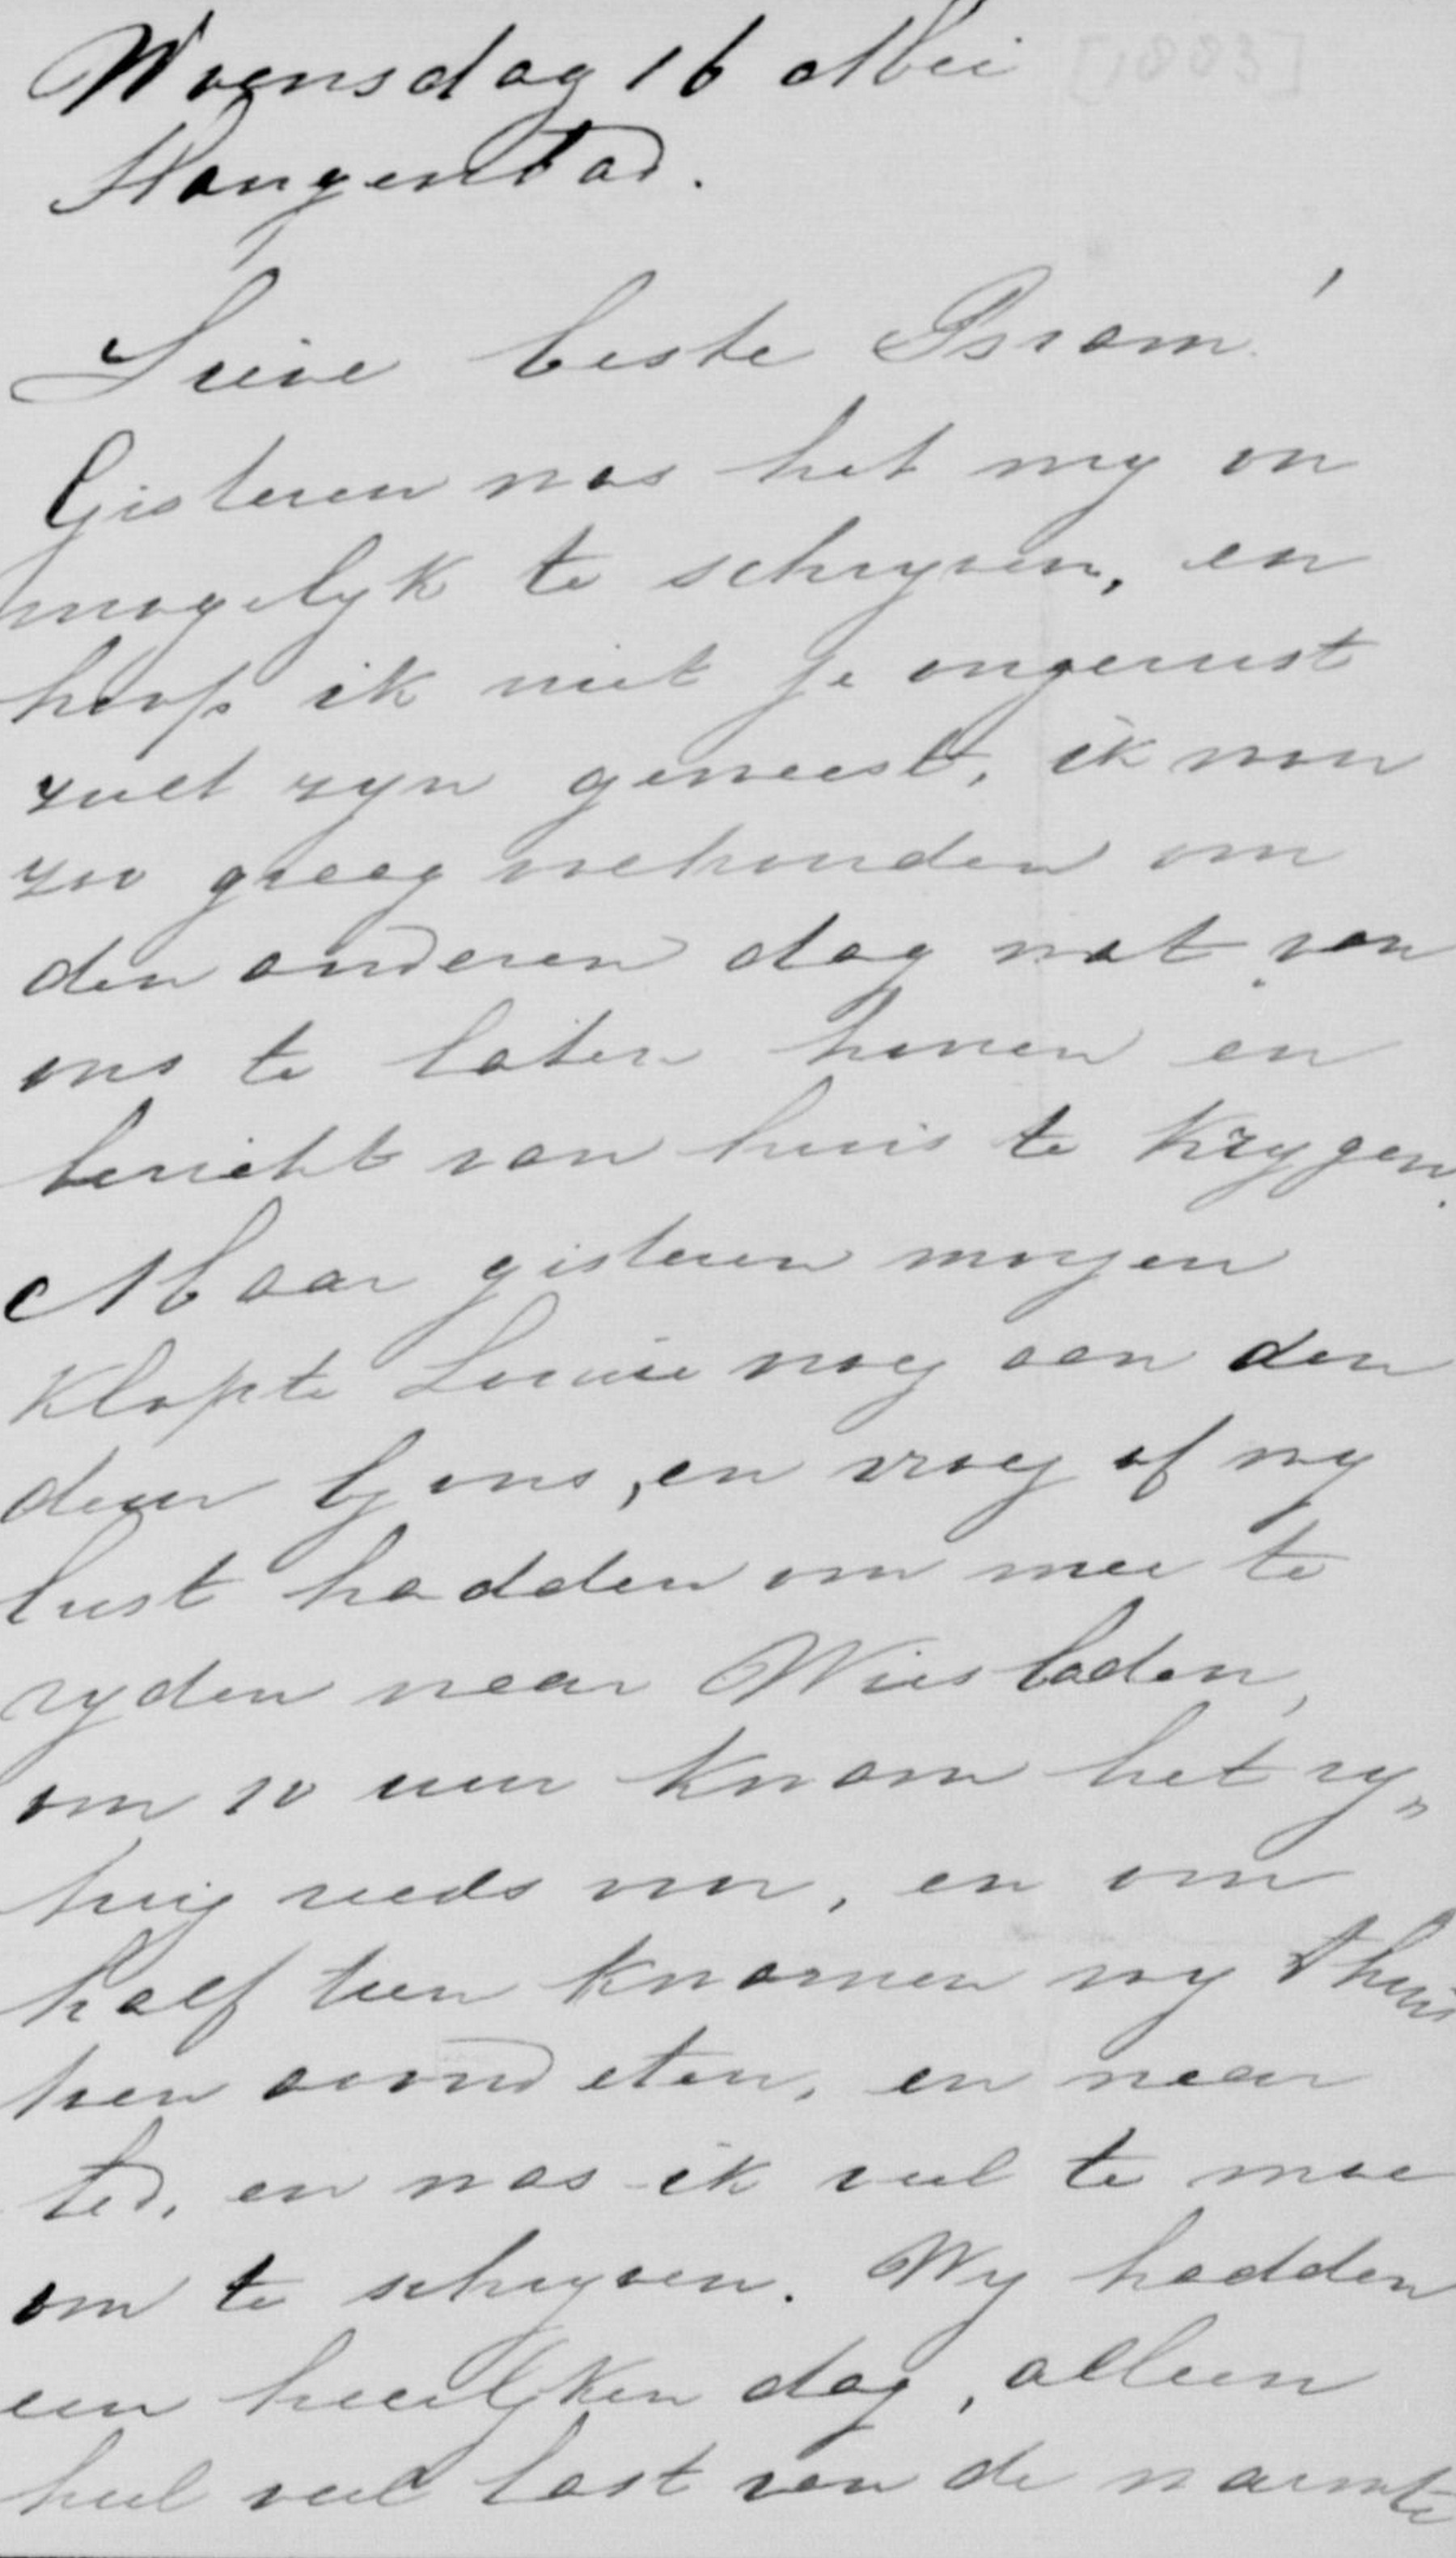 Woensdag 16 Mei [1883]
Slangenbad.
Lieve beste Bram!
Gisteren was het my on
mogelyk te schryven, en
hoop ik niet je ongerust
zult zyn geweest, ik won
zoo graag wehouden om
den anderen dag wat van
ons te laten hooren en
bericht van huis te krygen.
Maar gisteren morgen
klopte Louise nog aan den
deur by ons, en vroeg of wy
lust hadden om mee te
ryden naar Wiesbaden,
om 10 uur kwam het ry„
tuig reeds voor, en om
half tien kwamen wy thuis
ten avond eten, en naar
bed, en was ik veel te moe
om te schryven. Wy hadden
een heerlyken dag, alleen
heel veel last van de warmte